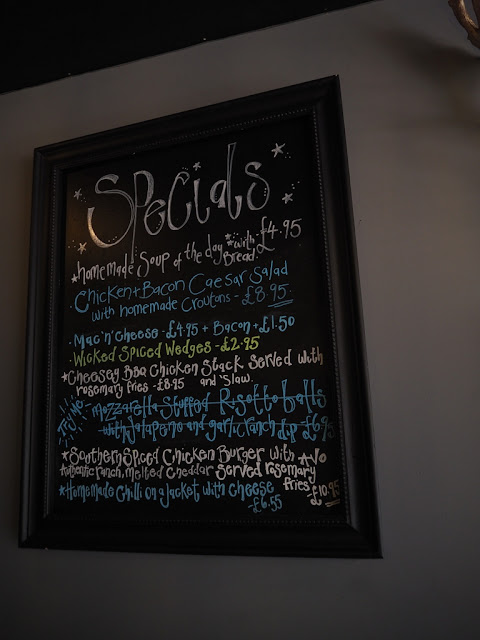 Specials
*homemade Soup of the day *with Bread. - £4.95
· Chicken + Bacon Caesar Salad
with homemade Croutons - £8.95
· Mac 'n' Cheese - £4.95 + Bacon + £1.50
· Wicked Spiced Wedges - £2.95
*Cheesey BBQ Chicken Stack Served with
rosemary fries - £8.95 and 'Slaw.
mozzarella Stuffed Risotto balls
with Jalapeno and garlic ranch dip £6.95
*Southern Spiced Chicken Burger with Avo
Authentic ranch, melted Cheddar Served rosemary
fries - £10.95
*Homemade Chilli on a Jacket with Cheese
- £6.55